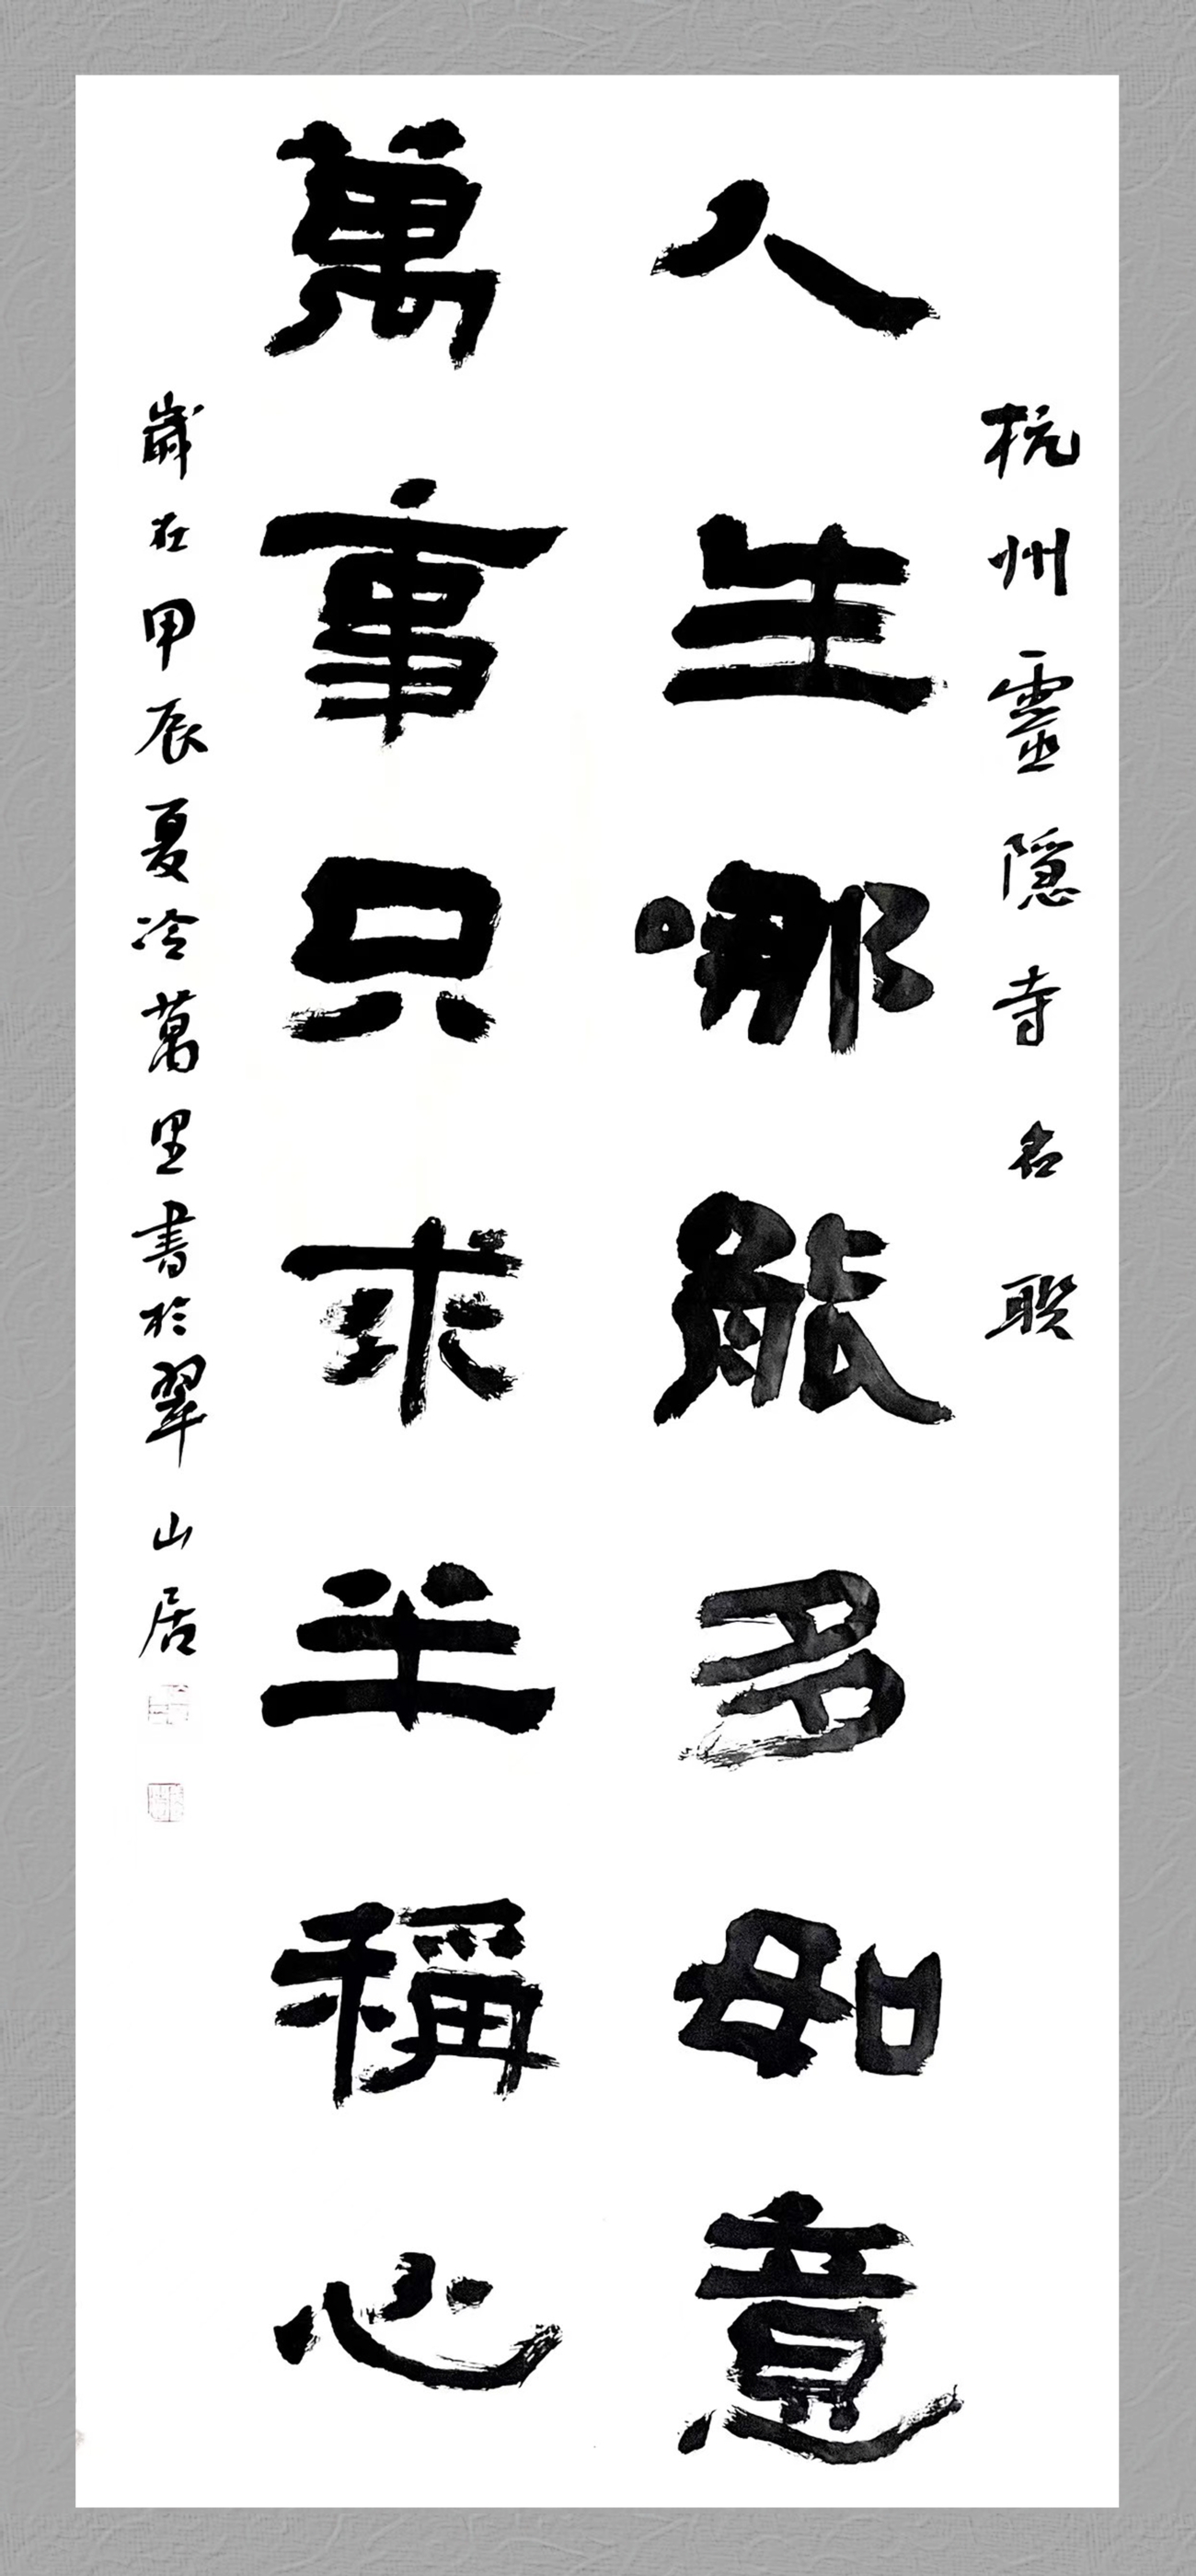 杭州靈隱寺名联
人生哪能多如意
萬事只求半稱心
歲在甲辰夏冷萬里書於翠山居